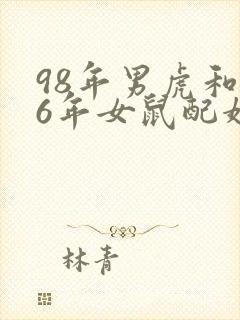 98年男虎和
6年女鼠配
林青